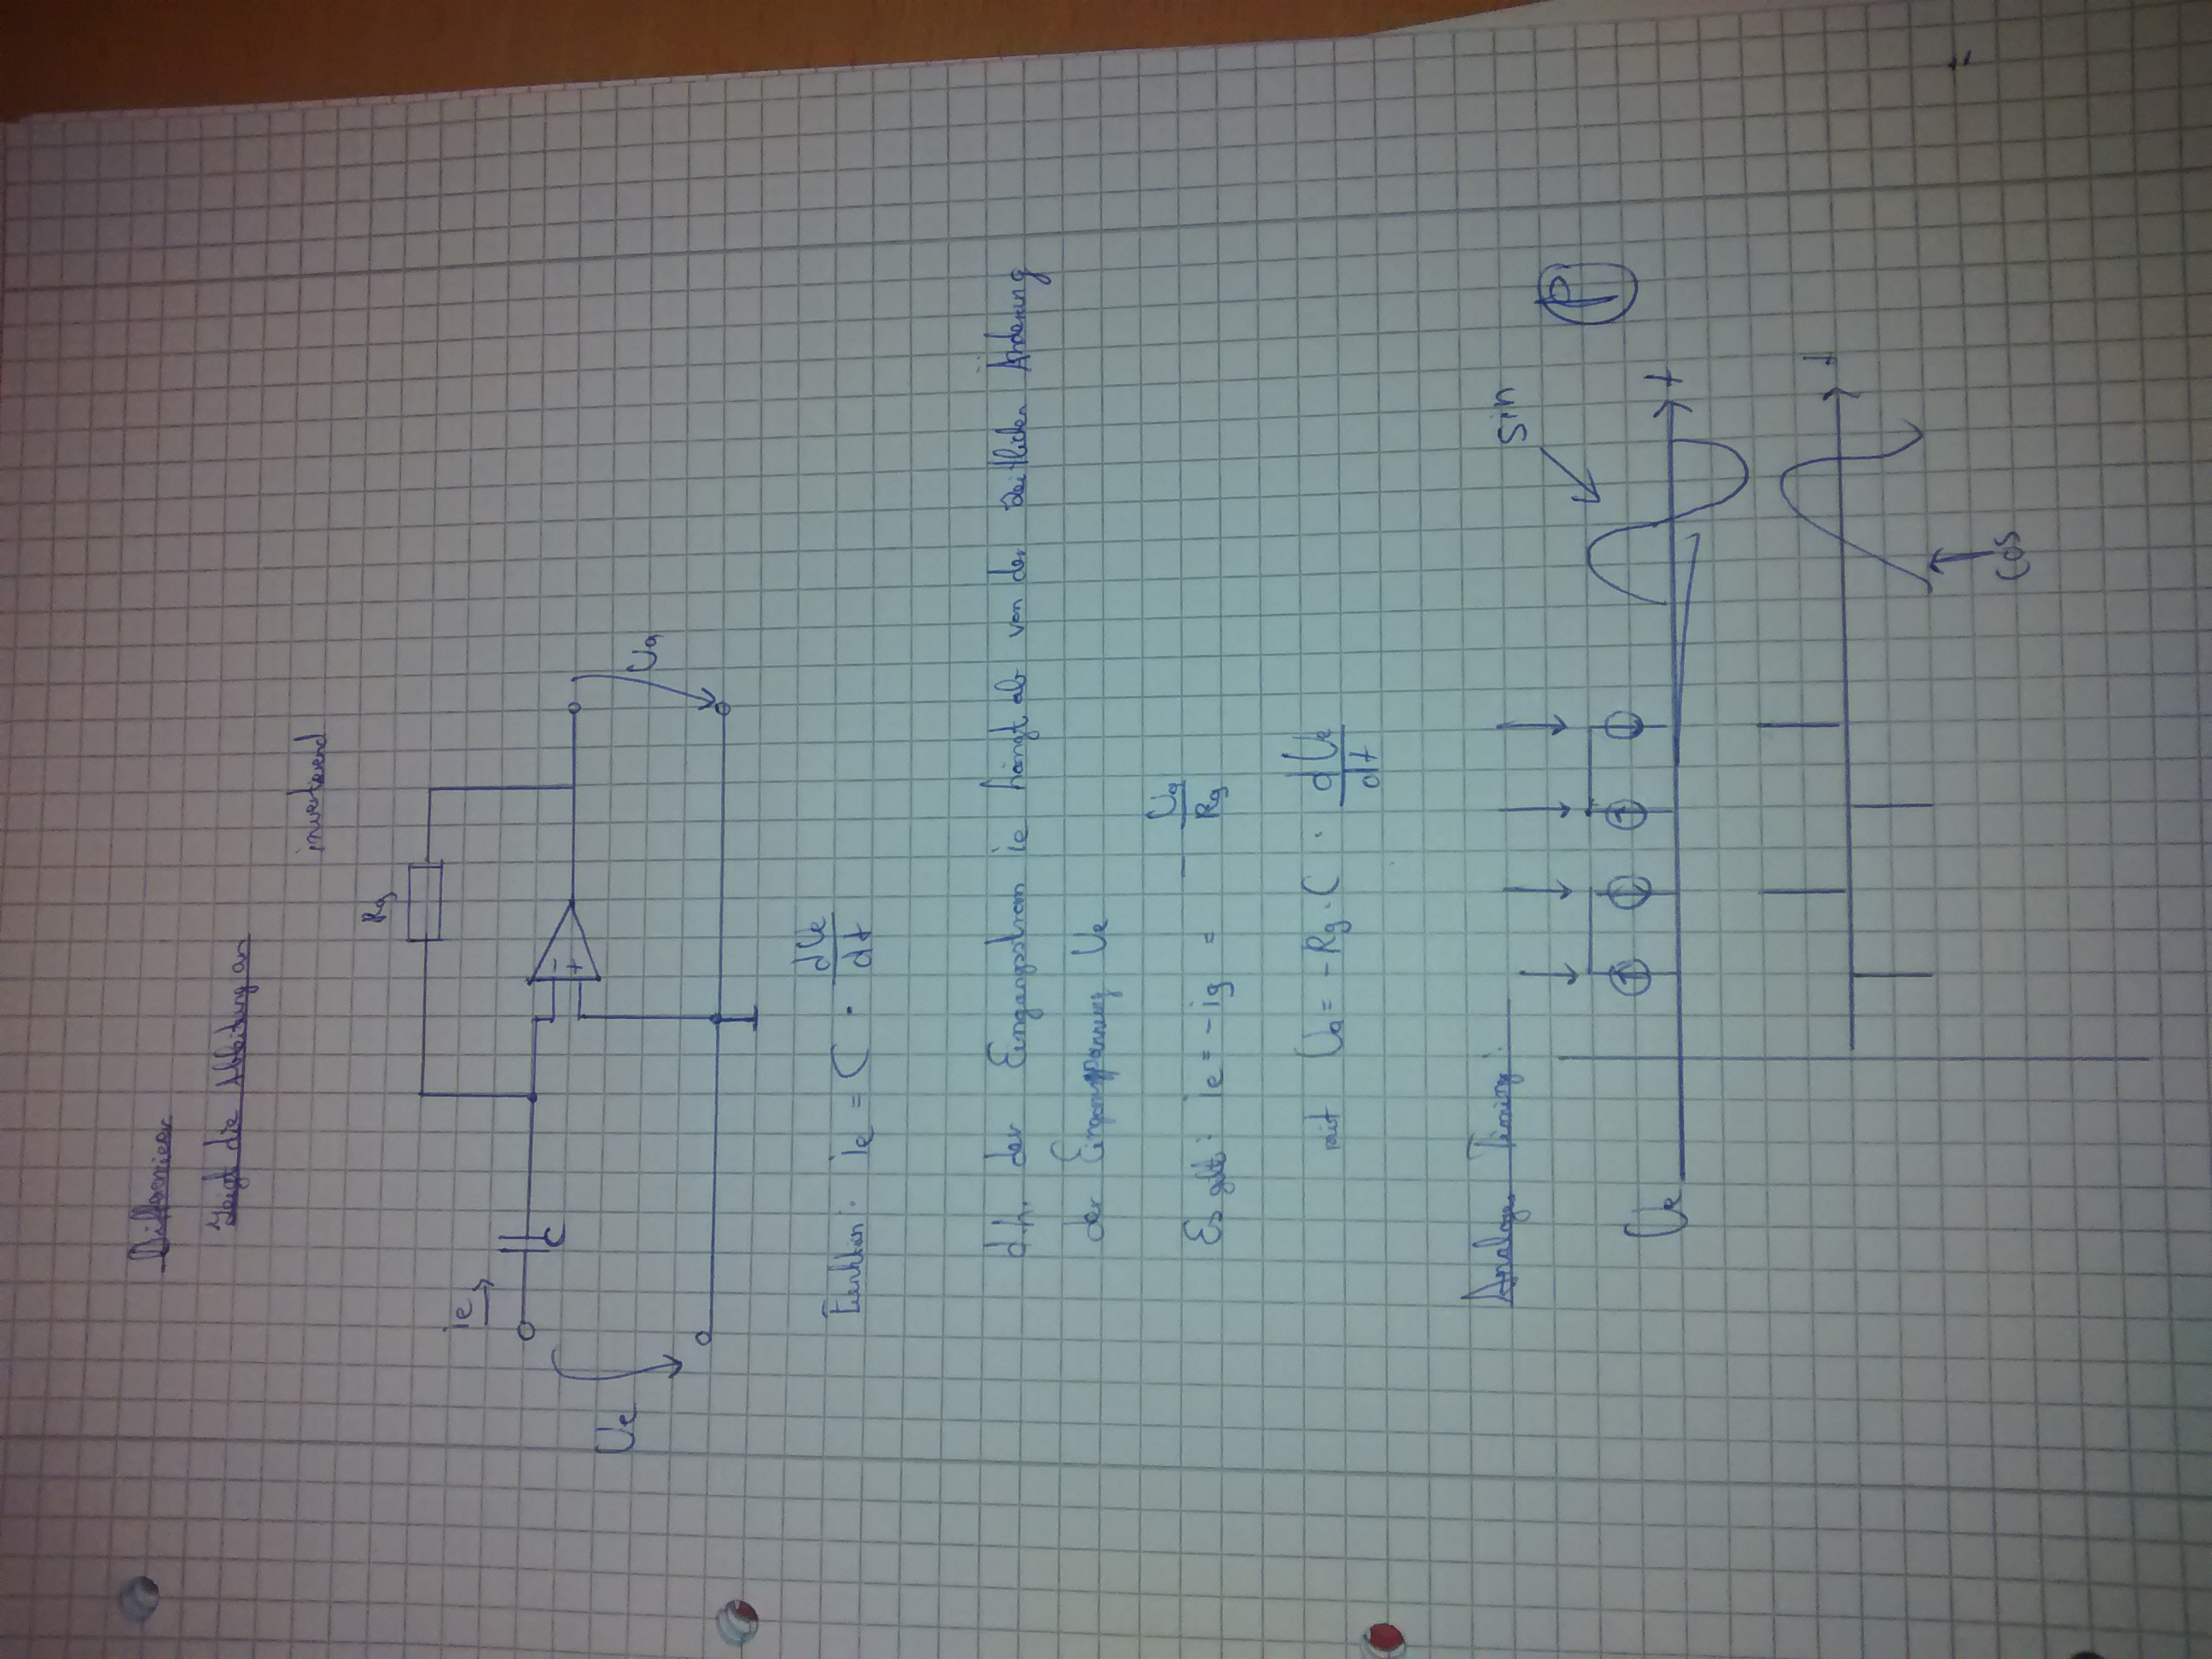 Differenzier
Zeigt die Ableitung an
invertierend
Rg
ie
C
-
+
Ue
Ua
Funktion: ie = C · dUe/dt
d.h. der Eingangsstrom ie hängt ab von der zeitlichen Änderung
der Eingangsspannung Ue
Es gilt: ie = -ig = - Ua/Rg
mit Ua = -Rg · C · dUe/dt
Analoges Timing:
sin
Ue
t
t
cos